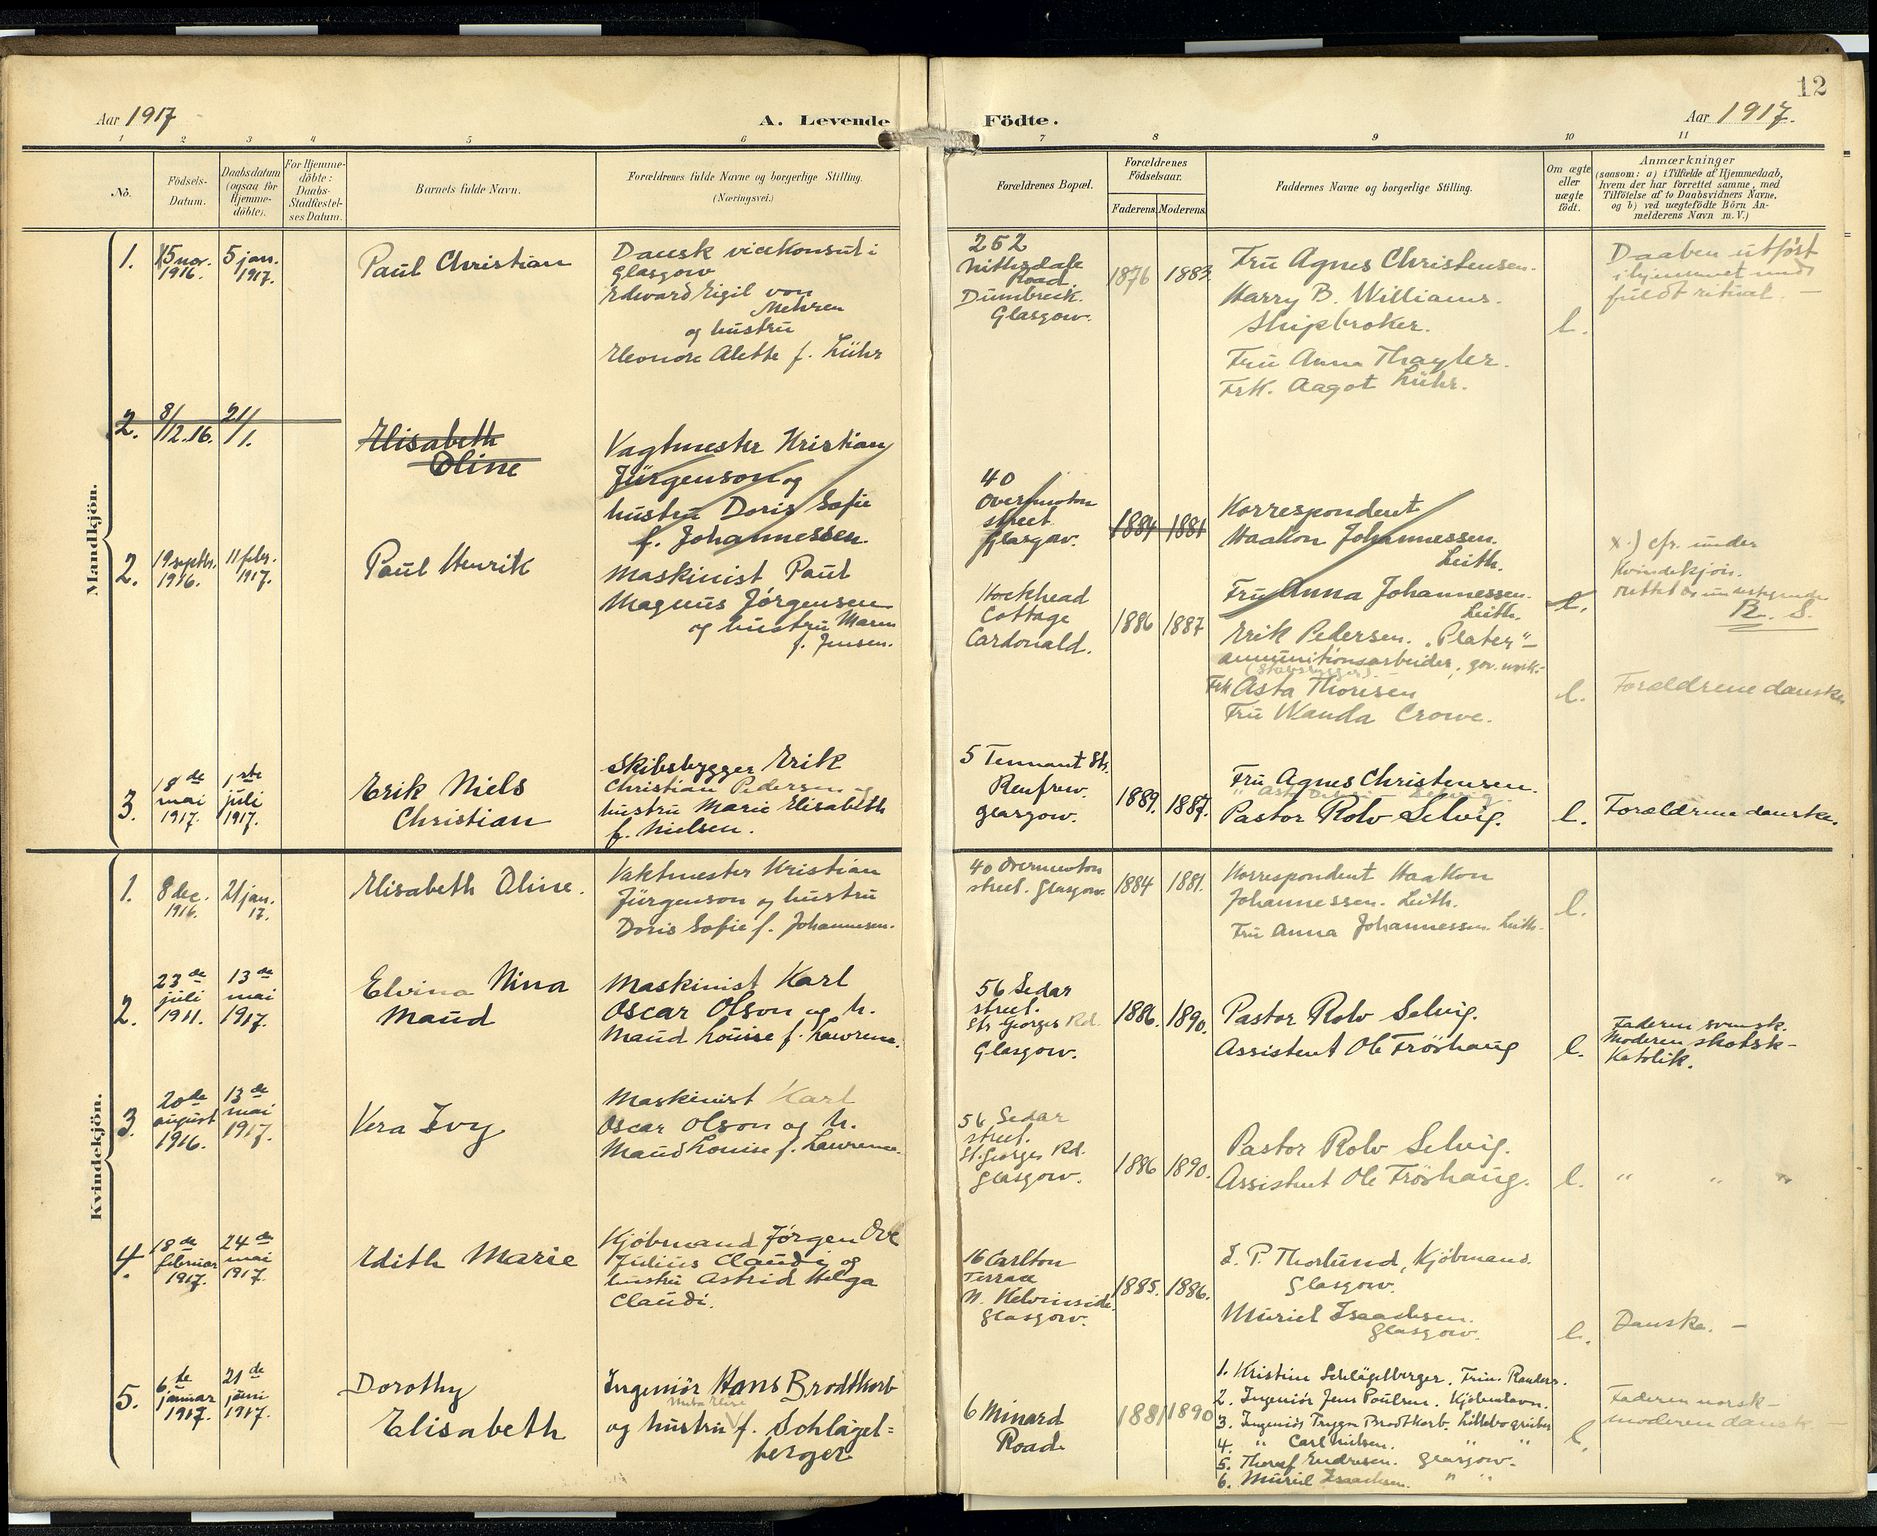 12
Aar 1917
A. Levende
Födte.
Aar 1917.
1 2 3 4 5 6 7 8 9 10 11
No.
Födsels-
Datum.
Daabsdatum
(ogsaa for
Hjemme-
döbte).
For Hjemme-
döbte:
Daabs-
Stadfæstel-
ses Datum.
Barnets fulde Navn.
Forældrenes fulde Navne og borgerlige Stilling.
(Næringsvei.)
Forældrenes Bopæl.
Forældrenes
Födselsaar.
Faderens.
Moderens.
Faddernes Navne og borgerlige Stilling.
Om ægte
eller
uægte
födt.
Anmærkninger
(saasom: a) i Tilfælde af Hjemmedaab,
hvem der har forrettet samme, med
Tilföielse af to Daabsvidners Navne,
og b) ved uægtefödte Börn An-
melderens Navn m. V.)
Mandkjön.
1.
15 nov.
1916.
5 jan.
1917.
Paul Christian
Dansk vicekonsul i
Glasgow
Edward Eigil von
Mehren
og hustru
Eleonore Alette f. Lühr
252
Nithsdale
Road
Dumbreck.
Glasgow.
1876
1883
Fru Agnes Christensen.
Harry B. Williams.
Shipbroker.
Fru Anna Thayler.
Frk. Aagot Lühr.
l.
Daaben utført
i hjemmet med
fuldt ritual. —
2.
8/12.16.
21/1.
Elisabeth
Oline
Vagtmester Kristian
Jürgenson og
hustru Doris Sofie
f. Johannessen.
40
Overnewton
street
Glasgow.
1884
1881
Korrespondent
Haakon Johannessen.
Leith.
Fru Anna Johannessen.
Leith.
l.
x.) cfr. under
Kvindekjön.
rettet &
R. S.
2.
19 septbr.
1916.
11 febr.
1917.
Paul Henrik
Maskinist Paul
Magnus Jørgensen
og hustru Maren
f. Jensen.
Hockhead
Cottage
Cardonald.
1886
1887
Erik Pedersen. "Plater" –
ammunitionsarbeider, gov. work.-
(Skibsbygger).
Frk Asta Thoresen
Fru Wanda Crowe.
l.
Forældrene danske
3.
18de
mai
1917.
1ste
juli
1917.
Erik Niels
Christian
Skibsbygger Erik
Christian Pedersen og
hustru Marie Elisabeth
f. Nielsen.
5 Tennant Str.
Renfrew.
Glasgow.
1889.
1887.
Fru Agnes Christensen.
Pastor Rolv Selvig.
l.
Forældrene danske.
Kvindekjön.
1.
8 dec.
1916.
21 jan.
17.
Elisabeth Oline.
Vaktmester Kristian
Jürgenson og hustru
Doris Sofie f. Johannesen.
40 Overnewton
street. Glasgow.
1884
1881.
Korrespondent Haakon
Johannessen. Leith.
Fru Anna Johannessen. Leith.
l.
2.
23de
juli
1911.
13de
mai
1917.
Elvina Nina
Maud
Maskinist Karl
Oscar Olson og h.
Maud Louise f. Lawrence.
56 Sedar
street.
St. Georges Rd.
Glasgow.
1886.
1890.
Pastor Rolv Selvig.
Assistent Ole Fröshaug
l.
Faderen svensk.
Moderen skotsk –
Katolik.
3.
20de
august
1916.
13de
mai
1917.
Vera Ivy
Maskinist Karl
Oscar Olson og h.
Maud Louise f. Lawrence.
56 Sedar
street.
St. Georges Rd.
Glasgow.
1886
1890.
Pastor Rolv Selvig.
Assistent Ole Fröshaug.
l.
" " "
4.
18de
februar
1917.
24de
mai
1917.
Edith Marie
Kjöbmand Jørgen Ove
Julius Claudi og
hustru Astrid Helga
Claudi.
16 Carlton
Terrace
N. Kelvinside
Glasgow.
1885.
1886.
L. P. Thorlund, Kjöbmand.
Glasgow.
Muriel Isaachsen.
Glasgow.
l.
Danske. –
5.
6te
januar
1917.
21de
juni
1917.
Dorothy
Elisabeth
Ingeniör Hans Brodtkorb
og hustru f. Schlägel=
berger
6 Minard
Road
1881
1890
1. Kristine Schlägelberger. Frue. Randers.
2. Ingeniör Jens Poulsen. Kjöbenhavn.
3. Ingeniör Trygve Brodtkorb. Lillebo gruber
4. " Carl Nielsen. " "
5. Thoralf Endresen. Glasgow.
6. Muriel Isaachsen. " "
l.
Faderen norsk –
moderen dansk –